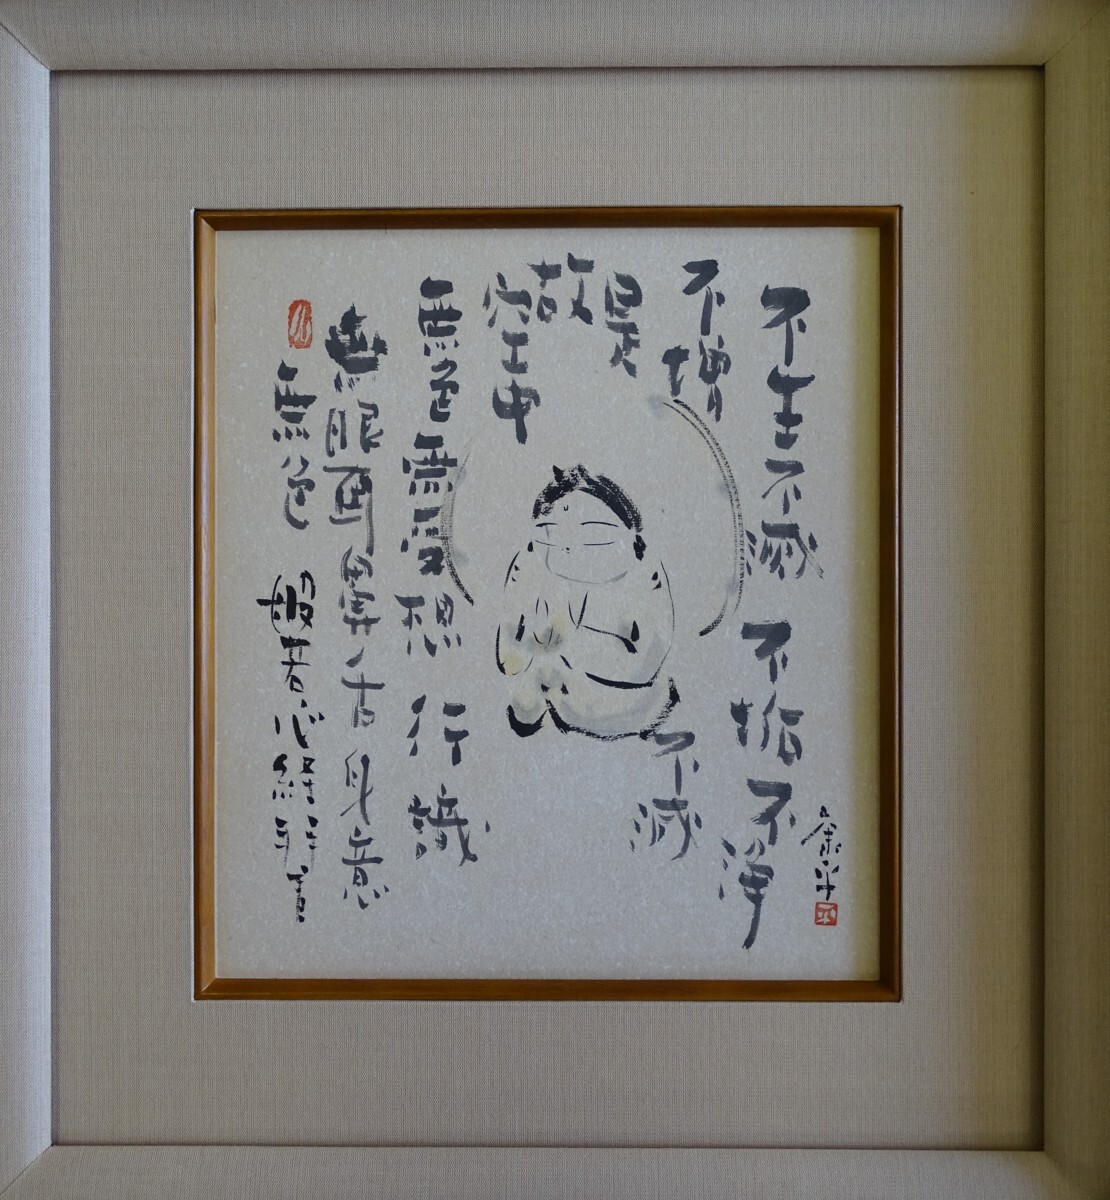 不生不滅不垢不浄
不増不減
是故
空中
無色無受想行識
無眼耳鼻舌身意
無色 般若心経
平